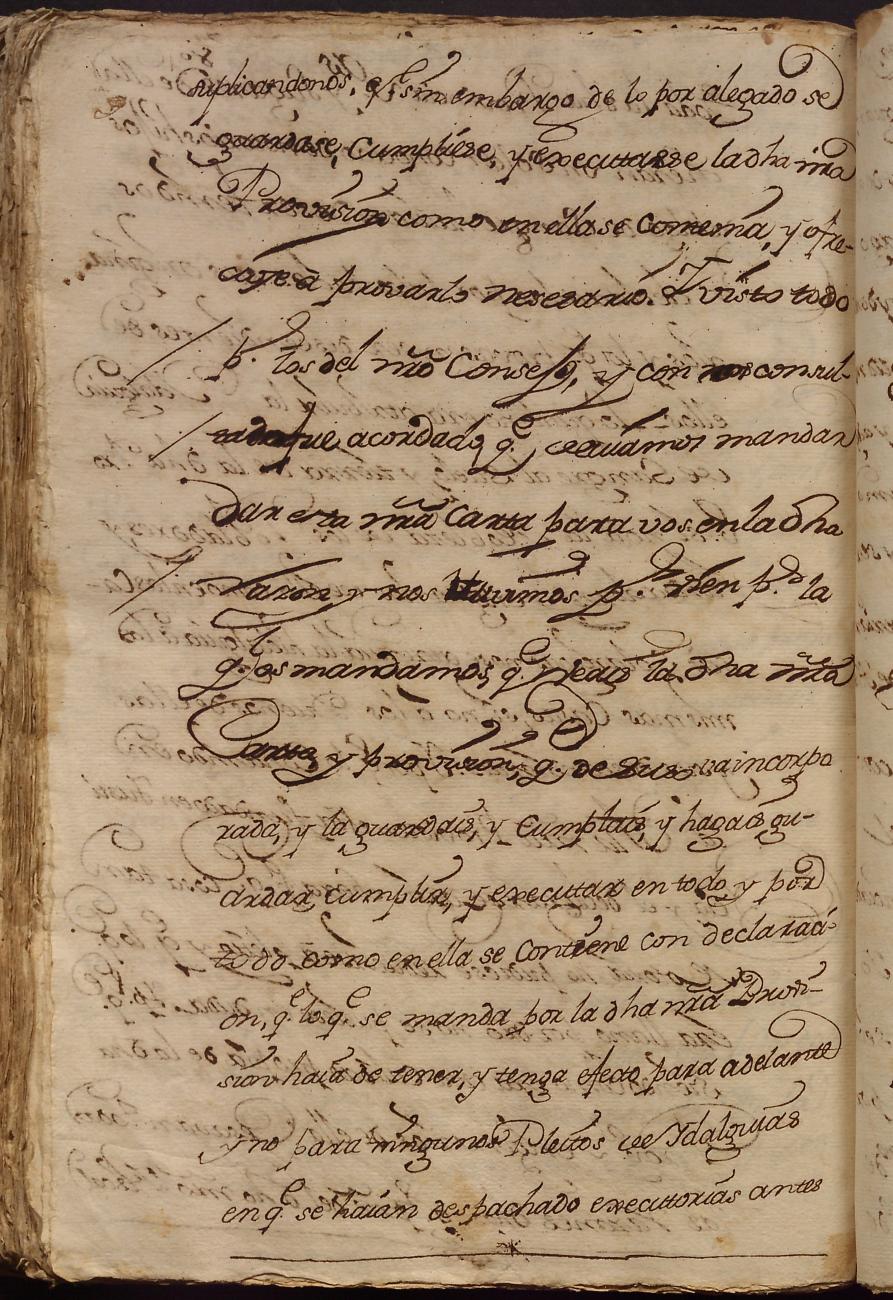 suplicandonos, q.e sin embargo de lo por alegado se
guardase, Cumpliese, y executasse la dha nra
Provisión como en ella se contenia, y ofre-
ciose à provarlo nesesario. Y visto todo
p.r los del nro Consejo, y con nos consul-
tado fue acordado, q.e deviamos mandar
Dar esta nra Carta para vos en la dha
razon y nos tuvimos p.r vien p.r la
q.l os mandamos, q.e veais la dha nra
Carta, y provisión, q.e de suso va incorpo
rada, y la guardais, y Cumplais, y hagais gu-
ardar, Cumplir, y executtar en todo, y por
todo como en ella se Contiene con declaraci-
on, q.e lo q.e se manda por la dha nra Provi-
sion haia de tener, y tenga efecto para adelante
y no para ningunos Pleitos de Ydalguias
en q.e se haian despachado executtorias antes